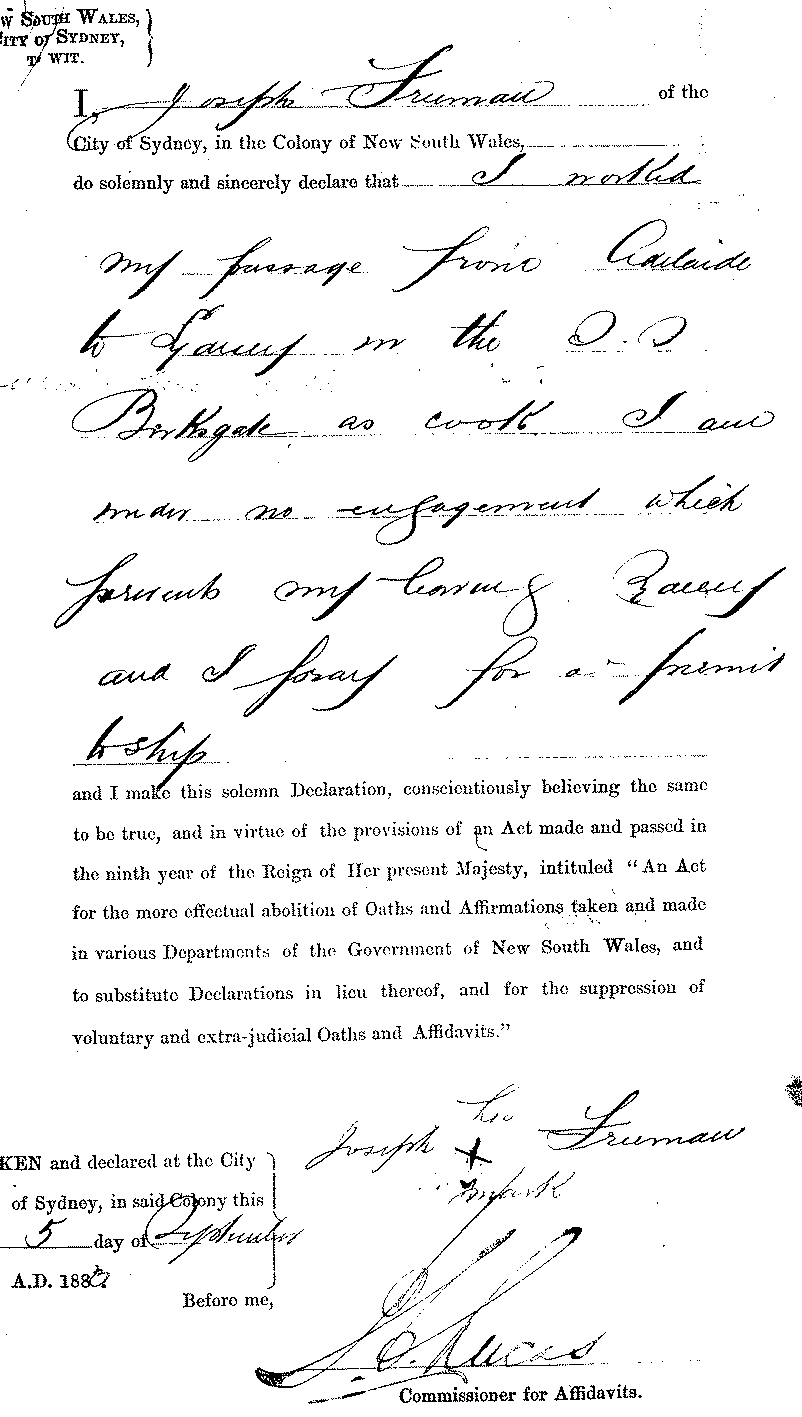 W SOUTH WALES,
CITY OF SYDNEY,
TO WIT.
I, Joseph Freeman of the
City of Sydney, in the Colony of New South Wales,
do solemnly and sincerely declare that I worked
my passage from Adelaide
to Sydney in the S.S
Birksgate as cook I am
under no engagement which
prevents my leaving
and I pray for a permit
to ship
and I make this solemn Declaration, conscientiously believing the same
to be true, and in virtue of the provisions of an Act made and passed in
the ninth year of the Reign of Her present Majesty, intituled "An Act
for the more effectual abolition of Oaths and Affirmations taken and made
in various Departments of the Government of New South Wales, and
to substitute Declarations in lieu thereof, and for the suppression of
voluntary and extra-judicial Oaths and Affidavits."
his
Joseph X Freeman
mark
KEN and declared at the City
of Sydney, in said Colony this
5 day of September
A.D. 188
Before me,
Lucas
Commissioner for Affidavits.